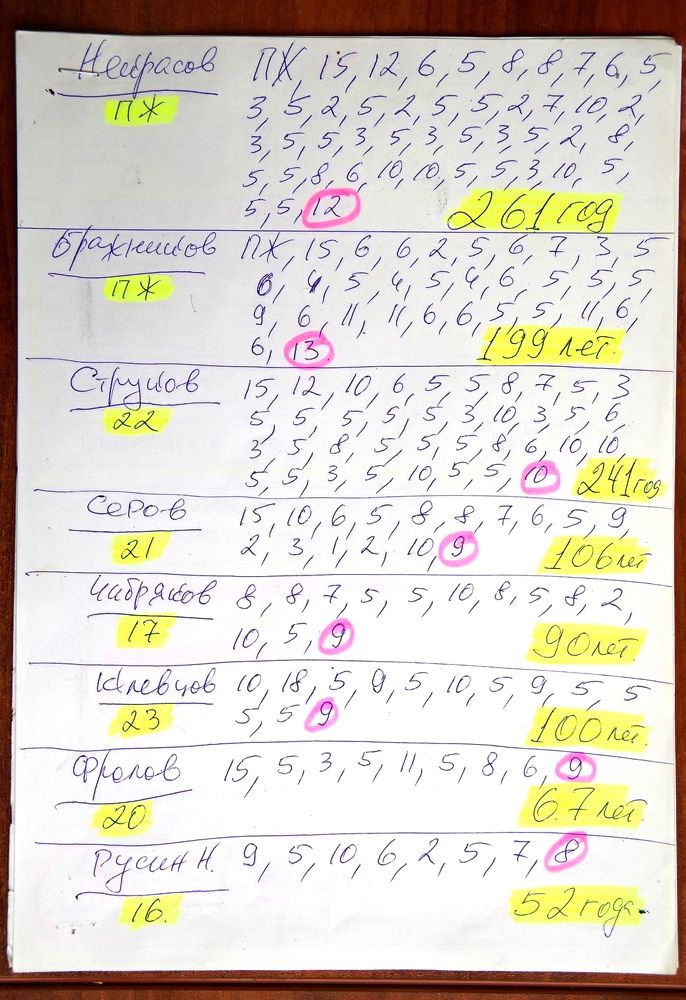 Некрасов ПЖ, 15, 12, 6, 5, 8, 8, 7, 6, 5,
ПЖ 3, 5, 2, 5, 2, 5, 5, 2, 7, 10, 2,
3, 5, 5, 3, 5, 3, 5, 3, 5, 2, 8,
5, 5, 8, 6, 10, 10, 5, 5, 3, 10, 5,
5, 5, 12 261 год
Бражников ПЖ, 15, 6, 6, 2, 5, 6, 7, 3, 5
ПЖ 6, 4, 5, 4, 5, 4, 6, 5, 5, 5,
9, 6, 11, 11, 6, 6, 5, 5, 11, 6,
6, 13 199 лет.
Струков 15, 12, 10, 6, 5, 5, 8, 7, 5, 3
22 5, 5, 5, 5, 5, 3, 10, 3, 5, 6,
3, 5, 8, 5, 5, 5, 8, 6, 10, 10,
5, 5, 3, 5, 10, 5, 5, 10 241 год
Серов 15, 10, 6, 5, 8, 8, 7, 6, 5, 9,
21 2, 3, 1, 2, 10, 9 106 лет
Чабряков 8, 8, 7, 5, 5, 10, 8, 5, 8, 2,
17 10, 5, 9 90 лет.
Клевцов 10, 18, 5, 9, 5, 10, 5, 9, 5, 5
23 5, 5 9 100 лет.
Фролов 15, 5, 3, 5, 11, 5, 8, 6, 9
20 67 лет.
Русин Н. 9, 5, 10, 6, 2, 5, 7, 8
16. 52 года.